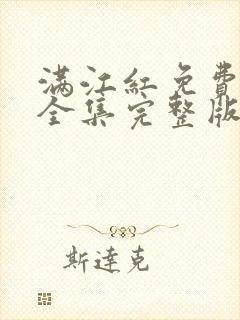 满江红免费
全集完整版
斯達克